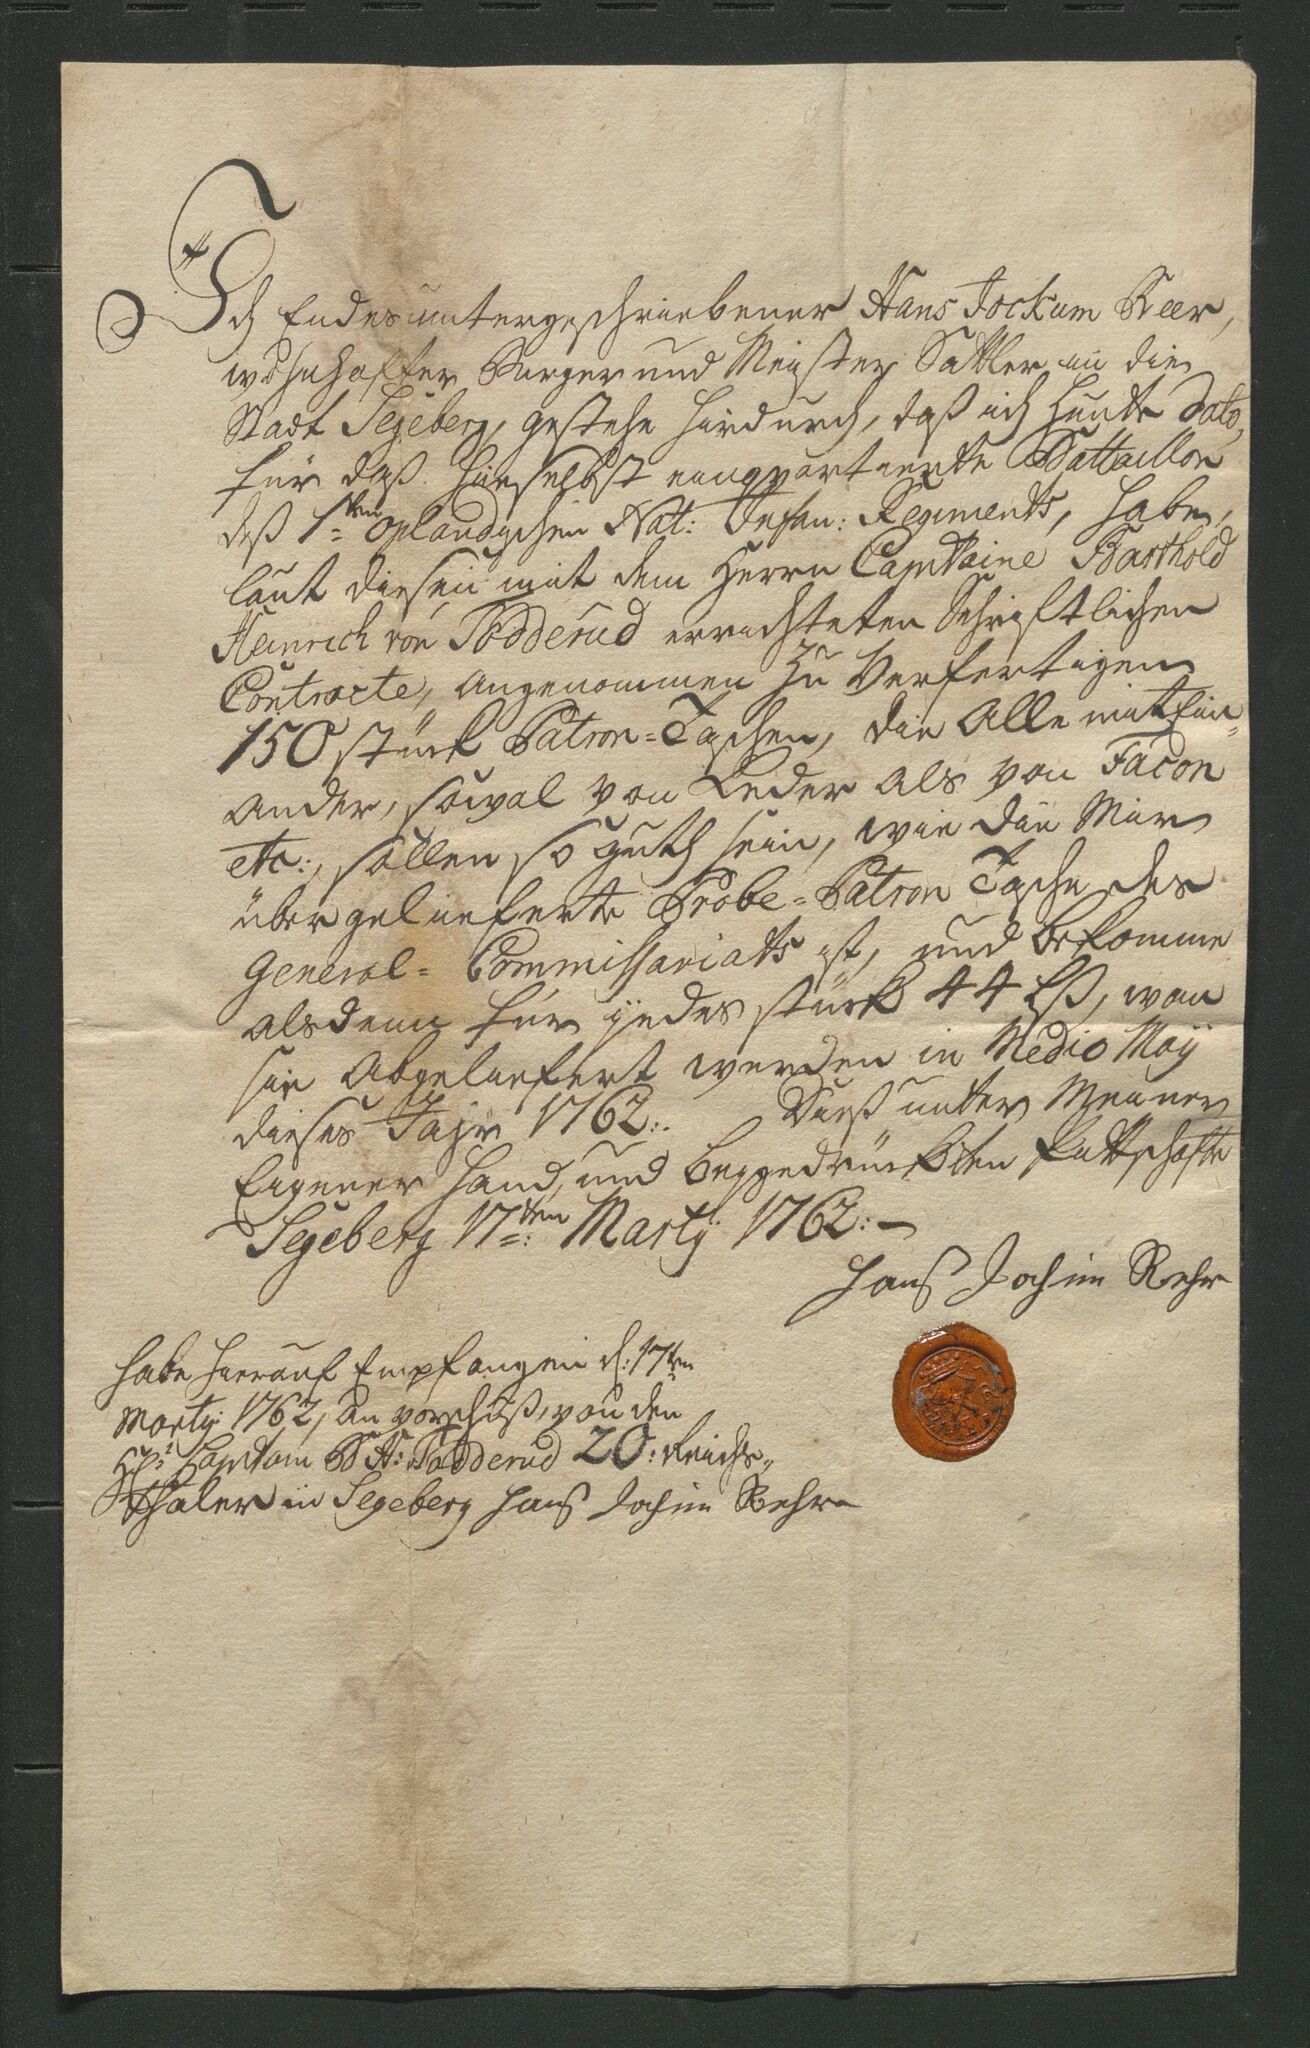 Ich Endesuntergeschriebener Hans Jockum Reer,
wohnhaffter Burger und Meister Sattler in die
Stadt Segeberg, gestehe hirdurch, daß ich Heute Dato,
für daß hieselbst einqvartierte Battaillon
deß 1sten Oplandischen Nat: Infan: Regiments, habe,
laut diesen mit dem Herrn Capitaine Barthold
Heinrich von Podderud errichteten Schriftlichen
Contracte, angenommen zu Verfertigen
150 stück Patron-Taschen, die Alle mit Ein-
ander, sowol von Leder als von Facon
etc:, sollen so guth sein, wie die Mir
übergelieferte Probe-Patron Tasche des
General-Commissariats ist, und bekomme
alsdenn für jedes stück 44 Lß, wan
sie Abgeliefert werden in Medio Maij
dieses Jahr 1762:. Dieß unter Meiner
Eigener Hand, und beygedrückten Pittschafft
Segeberg 17ten: Martij 1762:-
Hanß Jochim Rehr
habe hierauf Empfangen d: 17ten
Martij 1762, an vorschuß, von den
Hr: Capitain B H: Podderud 20: Reichs-
thaler in Segeberg Hanß Jochim Rehr